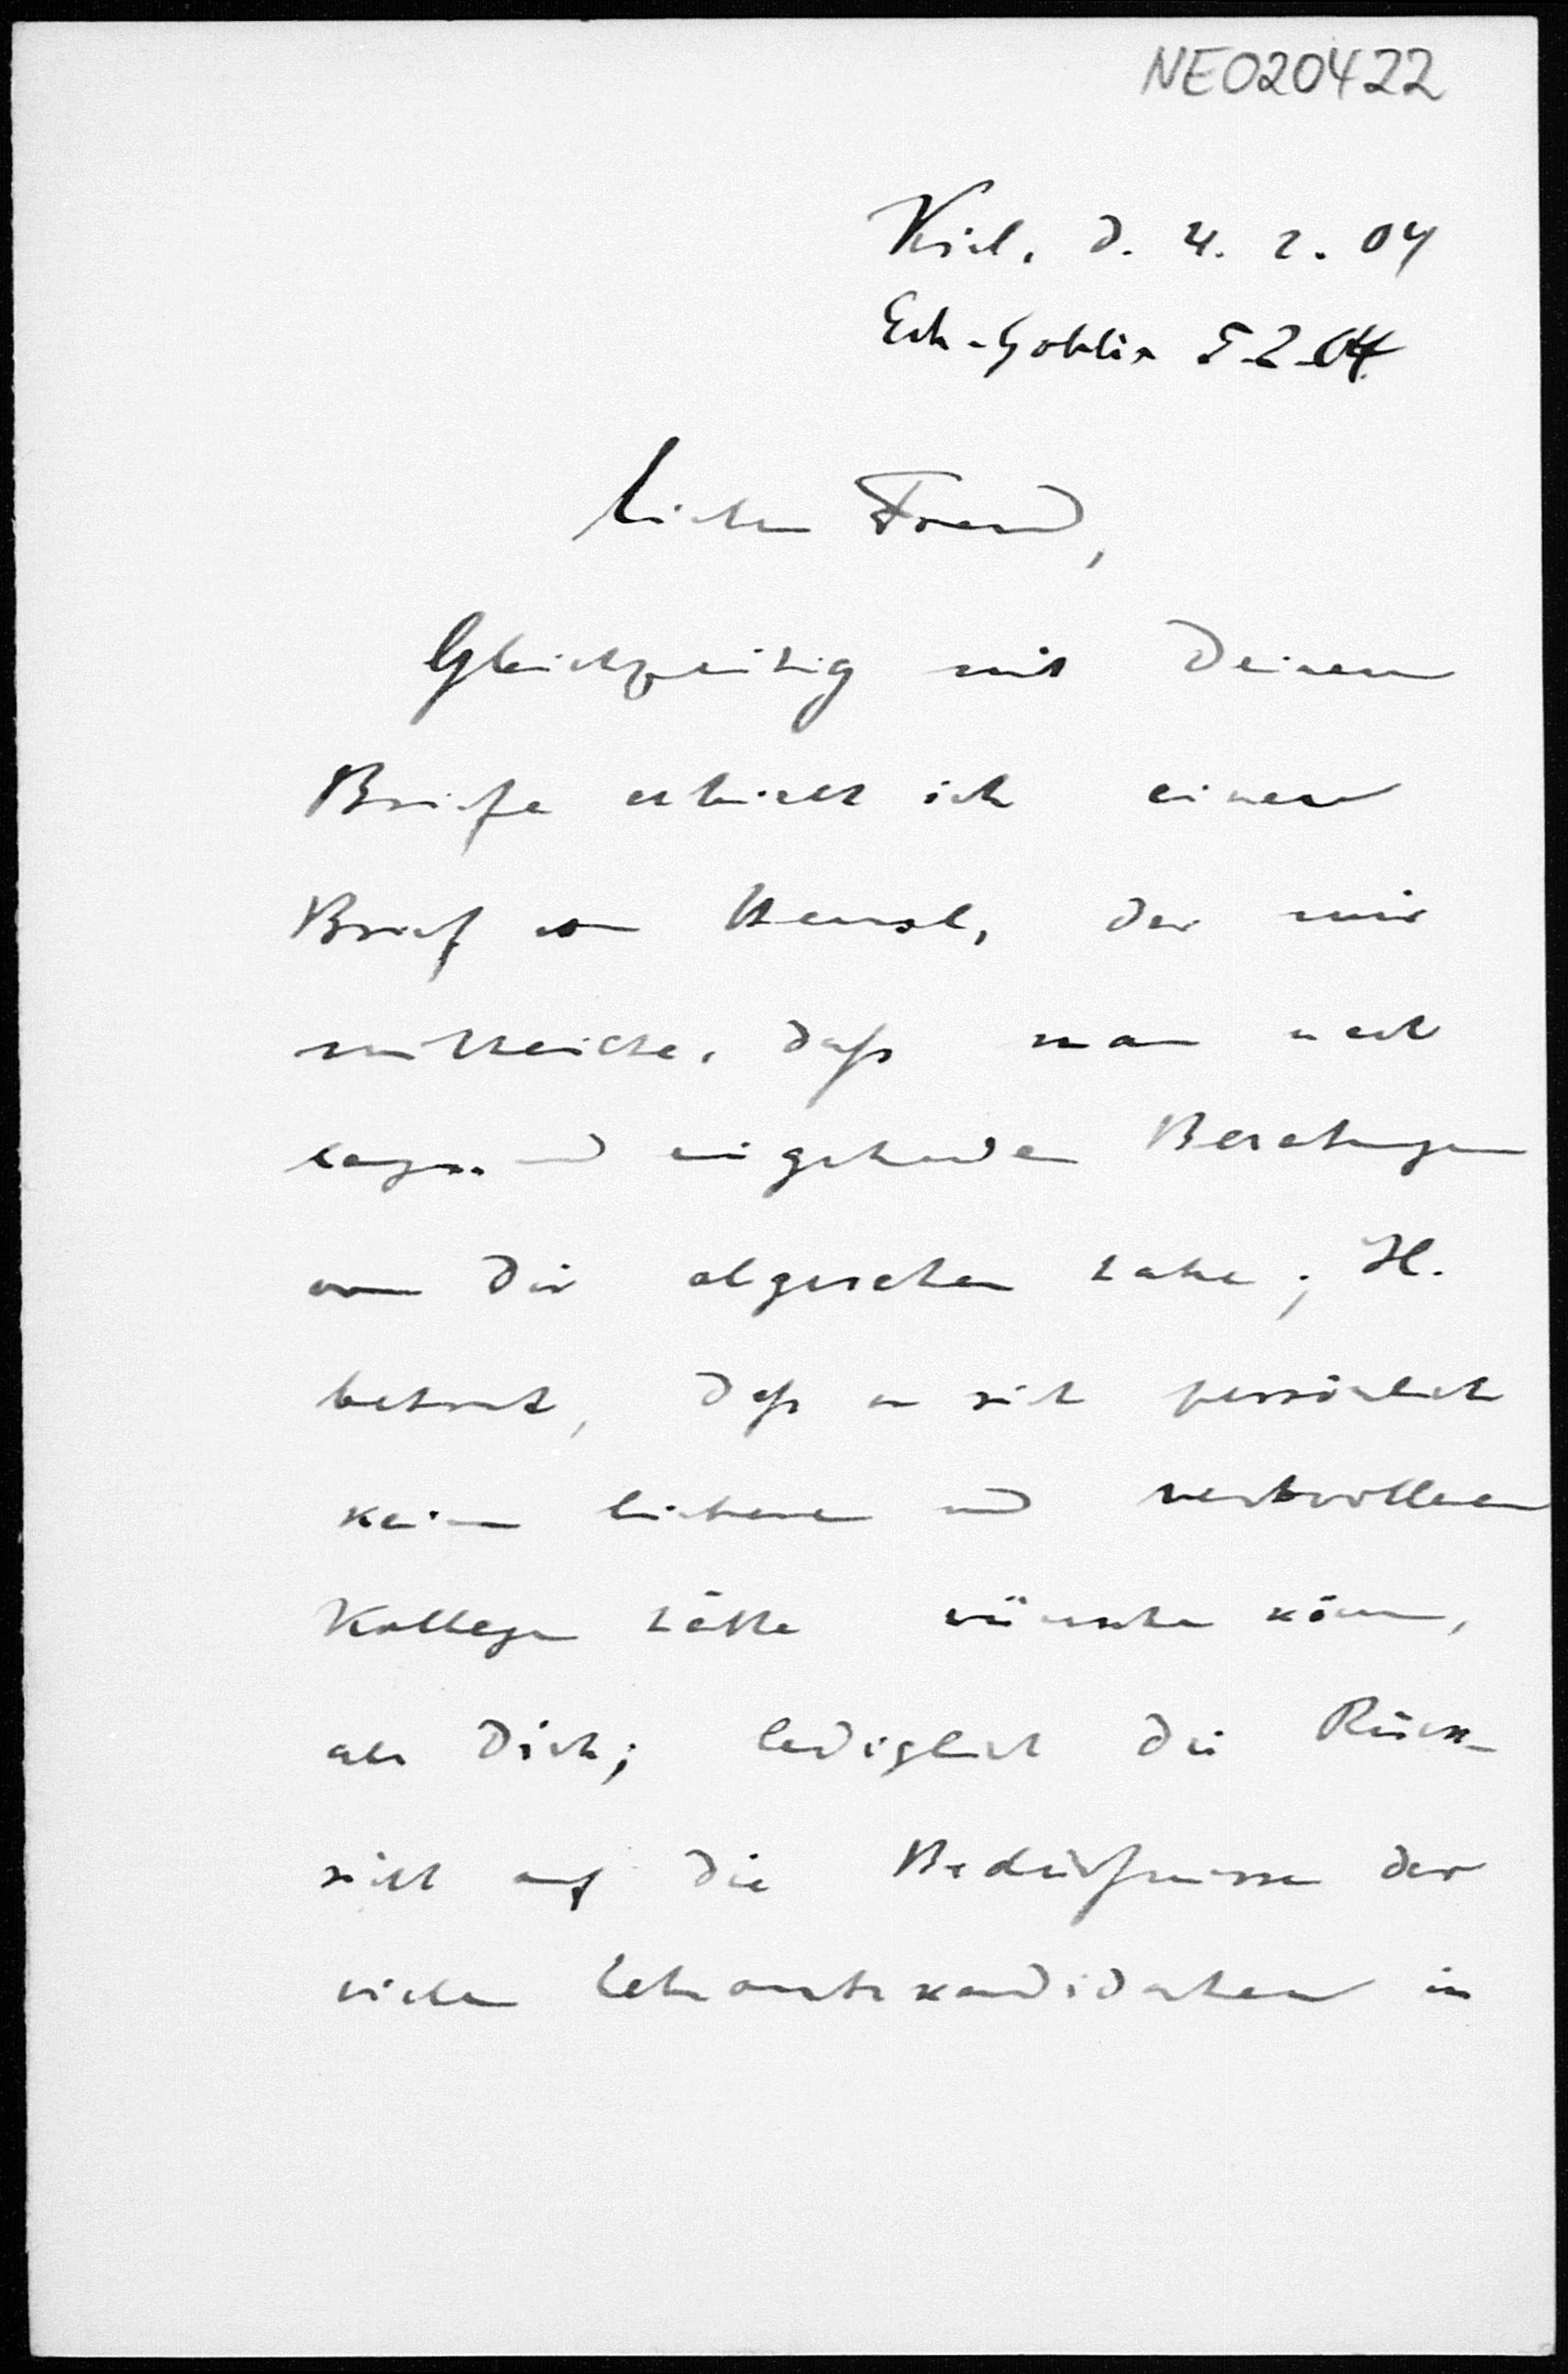 NE020422
Kiel, d. 4. 2. 04
Erh. Gohlis 5.2.04
Lieber Freund,
Gleichzeitig mit Deinem
Briefe erhielt ich einen
Brief von Hensel, der mir
mitteilte, daß man nach
langen und eingehenden Beratungen
von Dir abgesehen habe; H.
betont, daß er sich persönlich
keinen lieberen und wertvolleren
Kollegen hätte wünschen können,
als Dich; lediglich die Rück-
sicht auf die Bedürfnisse der
vielen Lehramtskandidaten in